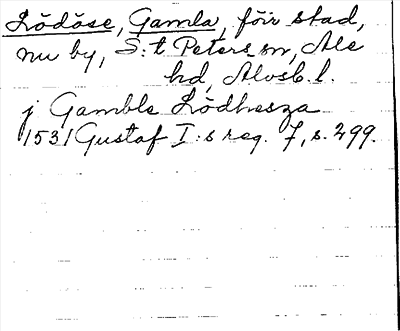 Lödöse, Gamla, förr stad,
nu by, S:t Peters sn, Ale
hd, Älvsb. l.
j Gamble Lödhesza
1531 Gustaf I:s reg. 7, s. 299.